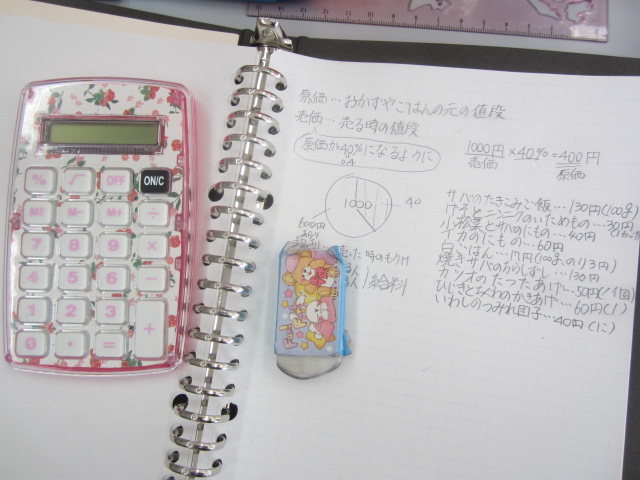 原価…おかずやごはんの元の値段
売価…売る時の値段
原価が40%になるように
0.4
1000円×40%=400円
売価
原価
1000
40
600円
時のもうけ
給料
サバのたきこみご飯…130円(100g)
けるとニンジンのいためもの…30円
小松菜とサバのにもの…40円
カのにもの…60円
白ごはん…17円(100g、のり3円)
焼きサバのちらしずし…130円
カツオのたつたあげ…50円(1個)
ひじきとちくわのかきあげ…60円(1)
いわしのつみれ団子…40円(1こ)
% √ OFF ON/C
MT M- M+ ÷
7 8 9 ×
4 5 6 -
1 2 3 +
0 · =